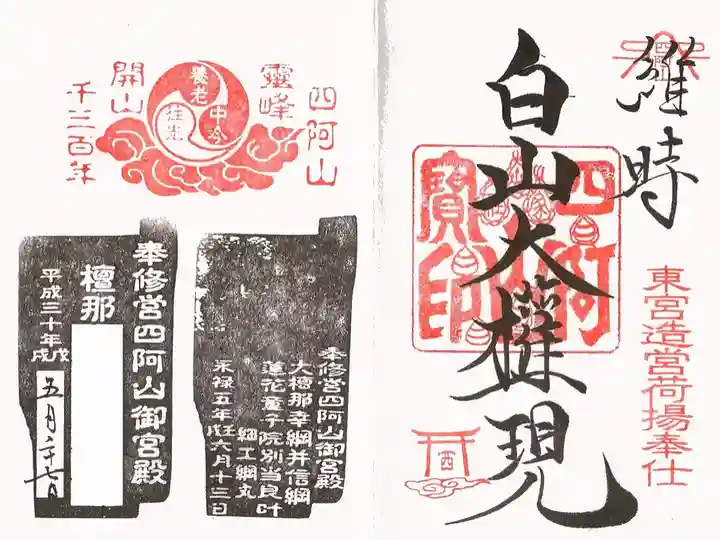 維時
白山大権現
四阿山
寳印
東宮造営荷揚奉仕
西
四阿山
靈峰
開山
千三百年
養老
中今
往生
奉修営四阿山御宮殿
大檀那幸綱并信綱
蓮花童子院別当良叶
細工綱丸
永禄五年壬戌六月十三日
奉修営四阿山御宮殿
檀那
平成三十年戊戌
五月二十七日